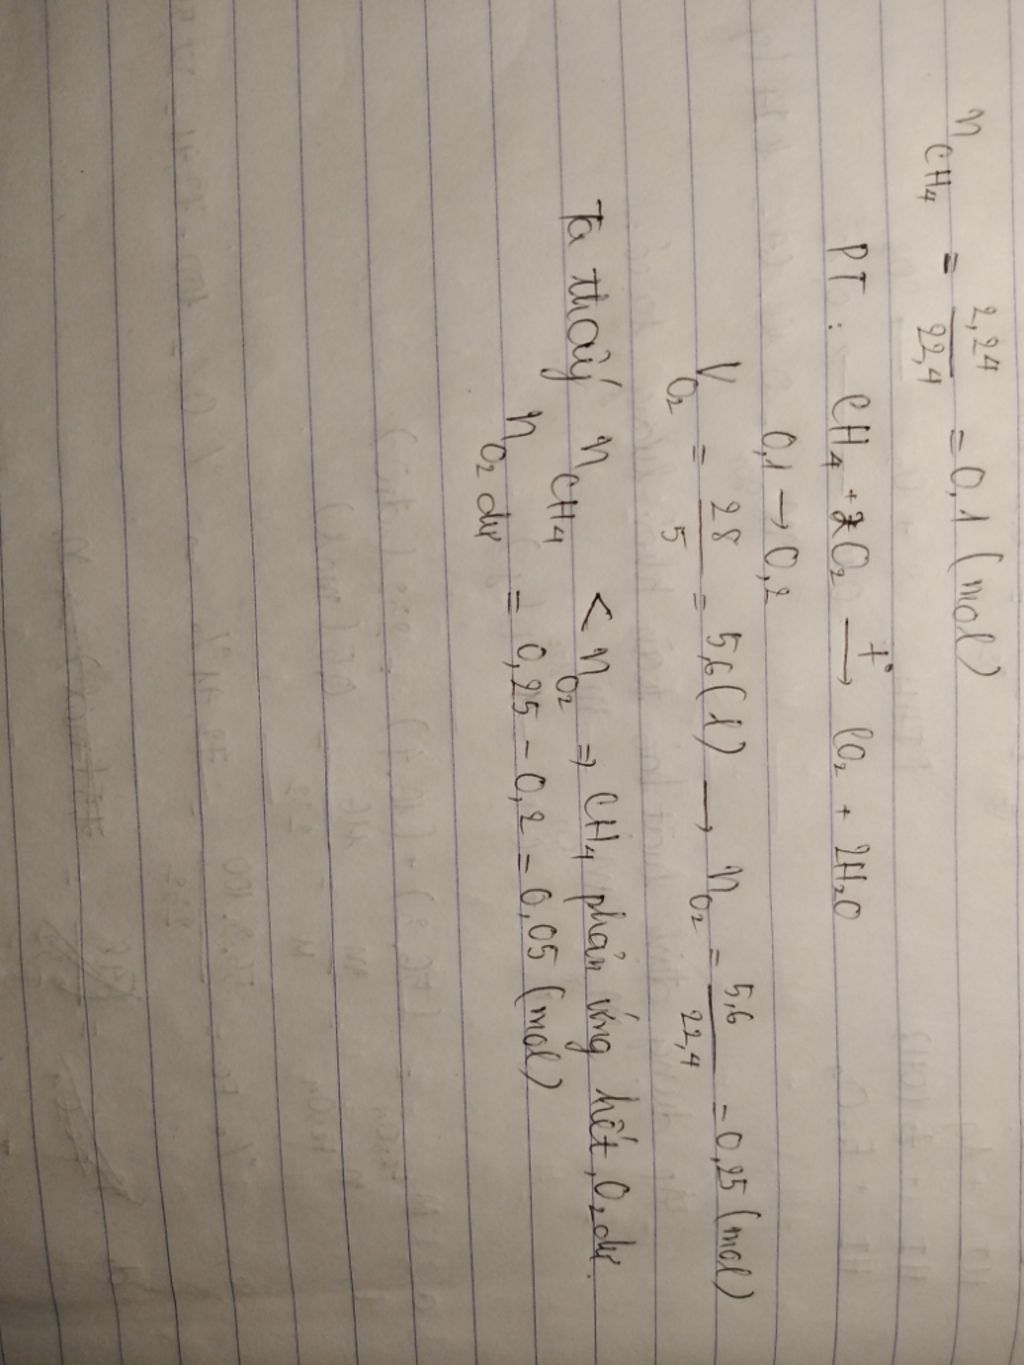 n CH₄ = 2,24/22,4 = 0,1 (mol)
PT : CH₄ + 2O₂ —t°→ CO₂ + 2H₂O
0,1 → 0,2
V O₂ = 28/5 = 5,6 (l) → n O₂ = 5,6/22,4 = 0,25 (mol)
Ta thấy n CH₄ < n O₂ ⇒ CH₄ phản ứng hết, O₂ dư.
n O₂ dư = 0,25 - 0,2 = 0,05 (mol)